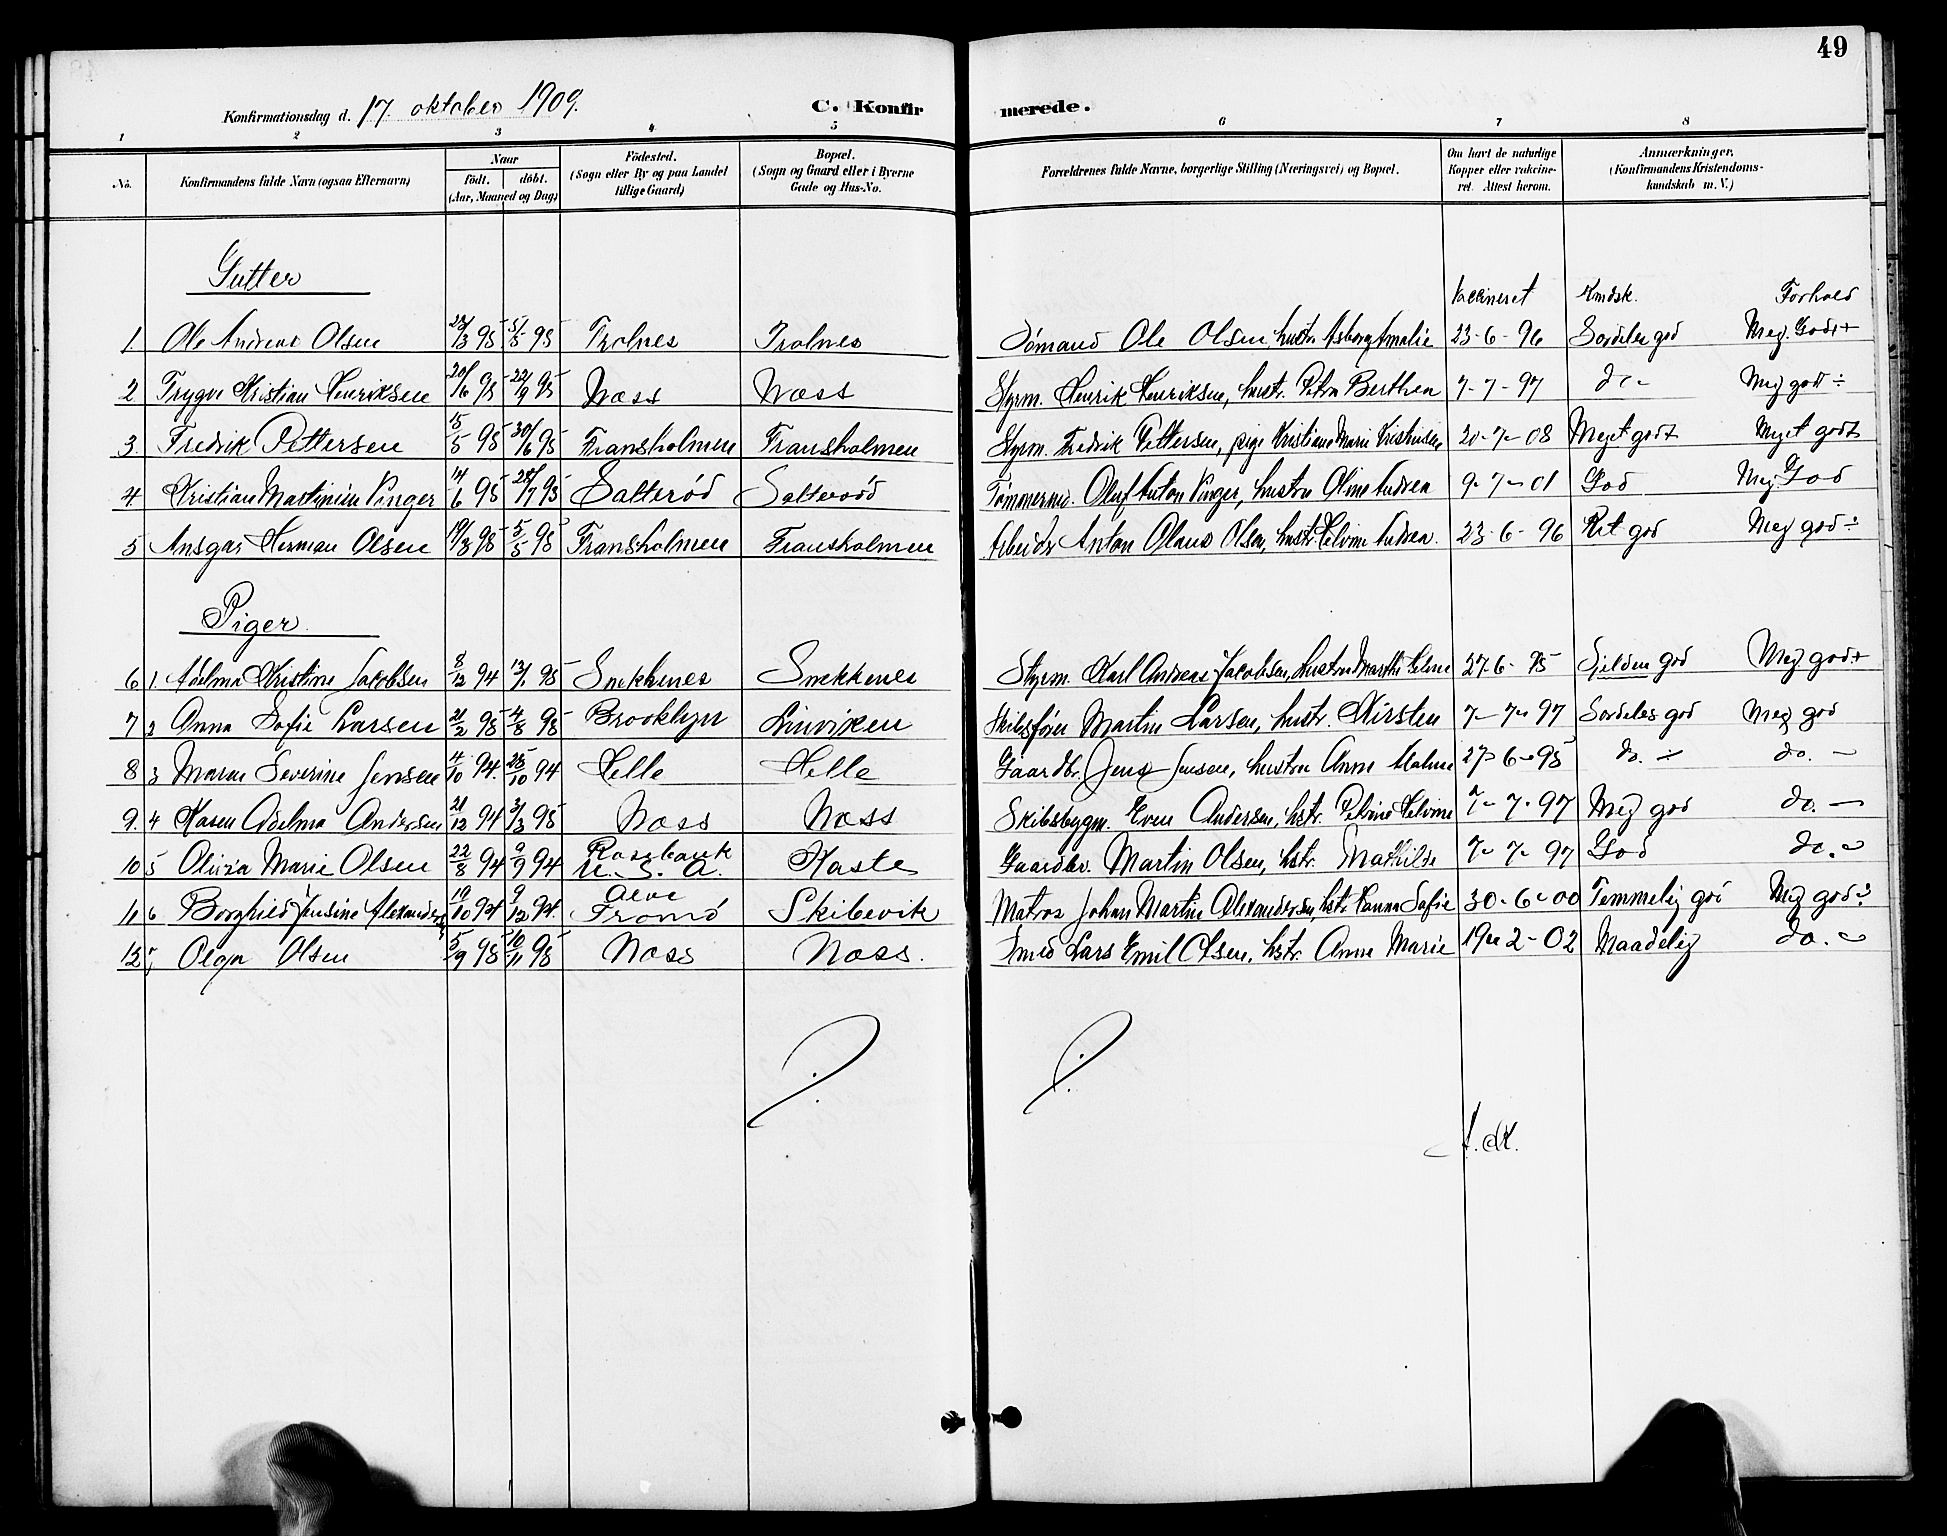 49
Konfirmationsdag d. 17. oktober 1909.
C. Konfirmerede.
1 2 3 4 5 6 7 8
No.
Konfirmandens fulde Navn (ogsaa Efternavn)
Naar
födt. döbt.
(Aar, Maaned og Dag)
Födested.
(Sogn eller By og paa Landet
tillige Gaard)
Bopæl.
(Sogn og Gaard eller i Byerne
Gade og Hus-No.
Forældrenes fulde Navne, borgerlige Stilling (Næringsvei) og Bopæl.
Om havt de naturlige
Kopper eller vakcine-
ret. Attest herom.
Anmærkninger,
(Konfirmandens Kristendoms-
kundskab m. V.)
Gutter
Vaccineret Kndsk. Forhold
1. Ole Andreas Olsen 3 95 5/5 95 Trolnes Trolnes Sømand Ole Olsen, hustr. Asborg Amalie 23-6-96 Særdeles god Meg. Godt+
2 Trygve Kristian Henriksen 20/6 95 22/9 95 Næss Næss Styrm. Henrik Henriksen, hustr. Petra Berthea 7-7-97 do - Meg godt ÷
3. Fredrik Pettersen 15/5 95 30/6 95 Fransholmen Fransholmen Styrm. Fredrik Pettersen, pige Kristiane Marie Kristensen 20-7-08 Meget godt Meget godt
4 Kristian Martinius Vinger 14/6 95 28/7 95 Salterød Salterød Tømmermd. Oluf Anton Vinger, hustru Oline Andrea 9-7-01 God Meg. God
5 Ansgar Herman Olsen 19/3 95 5/5 95 Fransholmen Fransholmen Arbeider Anton Olaus Olsen, hustr. Elvine Andrea. 23-6-96 Ret god Meg god ÷
Piger.
6 1. Adelma Kristine Jacobsen 8/12 94 13/1 95 Snekkenes Snekkenes Styrm. Karl Andreas Jacobsen, hustru Marthe Elvine 27-6-95 Sjelden god Meg god+
7 2 Anna Sofie Larsen 21/2 95 4/8 95 Brooklyn Linviken Skibsfører Martin Larsen, hustr. Kirsten 7-7-97 Særdeles god Meg god
8 3 Maren Severine Jensen 4/10 94. 28/10 94 Helle Helle Gaardbr. Jens Jensen, hustru Anne Malene 27-6-95 do. ÷ do. -
9. 4 Karen Adelma Andersen 21/12 94 3/3 95 Næss Næss Skibsbygm. Even Andersen, hstr. Petrine Elvine 7-7-97 Meg god do. -
10 5 Olivia Marie Olsen 22/8 94 9/9 94 Rosebank U. S. A. Kaste Gaardbr. Martin Olsen, hstr. Mathilde 7-7-97 God do. -
11 6 Borghild Jensine Alexandersen 19/10 94 9/12 94. Alve Tromø Skibevik Matros Johan Martin Alexandersen, hstr. Hanna Sofie 30-6-00 Temmelig god Meg god ÷
12 7 Olga Olsen 5/9 95 10/11 95 Næss Næss. Smed Lars Emil Olsen, hstr. Anne Marie 19-2-02 Maadelig do. -